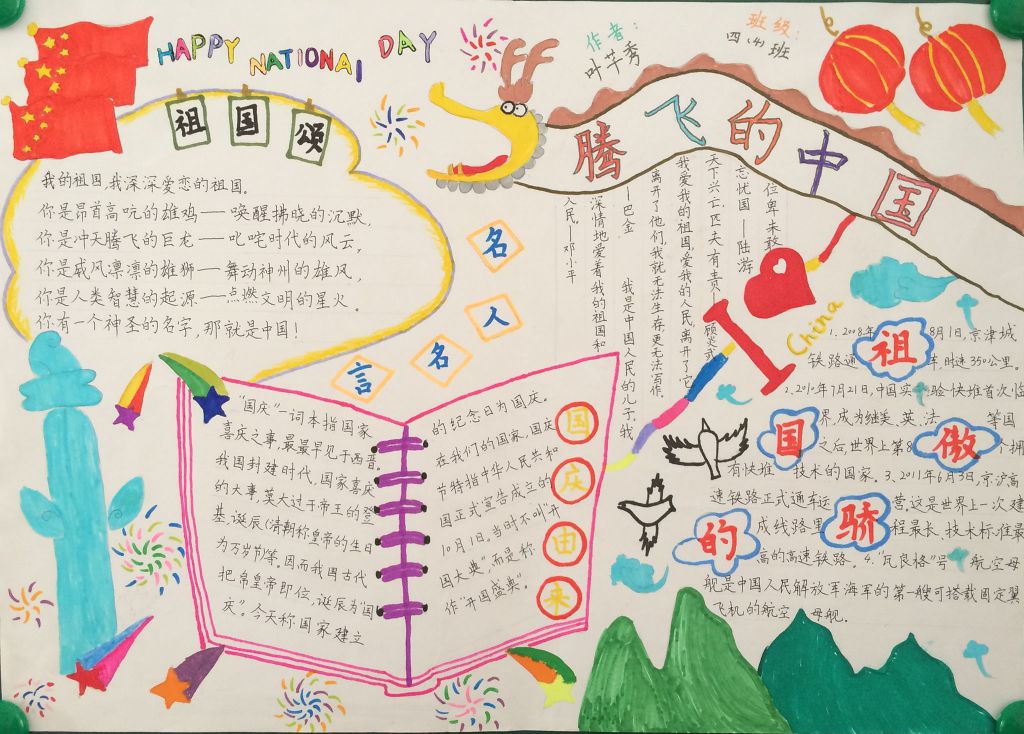 HAPPY NATIONAL DAY
作者:
叶芊秀
班级:
四(4)班
腾飞的中国
祖国颂
我的祖国,我深深爱恋的祖国。
你是昂首高吭的雄鸡——唤醒拂晓的沉默,
你是冲天腾飞的巨龙——叱咤时代的风云,
你是威风凛凛的雄狮——舞动神州的雄风,
你是人类智慧的起源——点燃文明的星火。
你有一个神圣的名字,那就是中国!
名人名言
位卑未敢
忘忧国——陆游
天下兴亡,匹夫有责——顾炎武
我爱我的祖国,爱我的人民,离开了它,
离开了他们,我就无法生存,更无法写作。
——巴金
我是中国人民的儿子,我
深情地爱着我的祖国和
人民,——邓小平
I
China
国庆由来
“国庆”一词本指国家
喜庆之事,最最早见于西晋。
我国封建时代,国家喜庆
的大事,莫大过于帝王的登
基、诞辰(清朝称皇帝的生日
为万岁节)等。因而我国古代
把帝皇帝即位、诞辰为“国
庆”。今天称国家建立
的纪念日为国庆。
在我们的国家,国庆
节特指中华人民共和
国正式宣告成立的
10月1日,当时不叫“开
国大典”,而是称
作“开国盛典”。
祖国的骄傲
1.2008年8月1日,京津城
铁路通车,时速350公里。
2.2010年7月21日,中国实验快堆首次临
界,成为继美、英、法等国
之后,世界上第8个拥
有快堆技术的国家。3.2011年6月3日,京沪高
速铁路正式通车运营,这是世界上一次建
成线路里程最长、技术标准最
高的高速铁路。4.“瓦良格”号航空母
舰是中国人民解放军海军的第一艘可搭载固定翼
飞机的航空母舰。